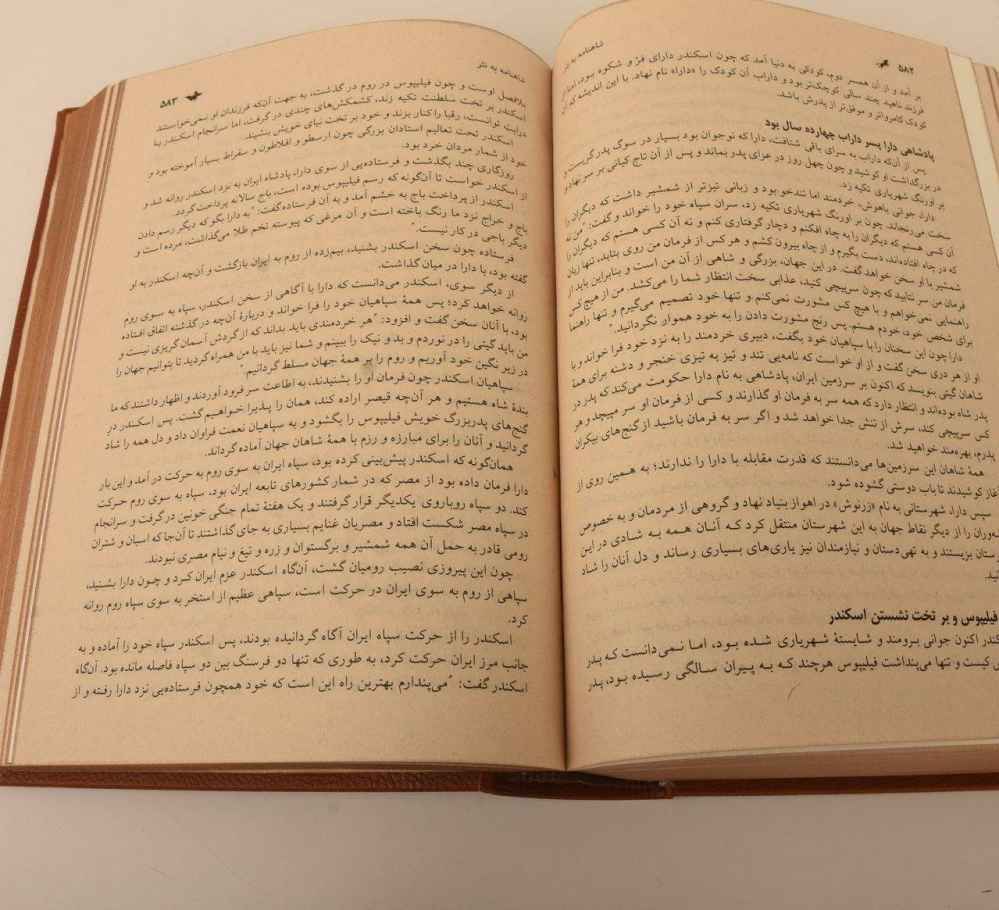 ۵۸۲
شاهنامه به نثر
بر آمد و از آن همسر دوم، کودکی به دنیا آمد که چون اسکندر دارای فرّ و شکوه بود،
فرزند ناهید چند سالی کوچک‌تر بود و داراب آن کودک را «دارا» نام نهاد. با این اندیشه که
کودک کامرواتر و موفق‌تر از پدرش باشد.
پادشاهی دارا پسر داراب چهارده سال بود
پس از آن‌که داراب به سرای باقی شتافت، دارا که نوجوان بود بسیار در سوگ پدر گریست و
در بزرگداشت او کوشید و چون چهل روز در عزای پدر بماند و پس از آن تاج کیانی بر سر نهاد
بر اورنگ شهریاری تکیه زد.
دارا، جوانی باهوش، خردمند اما تندخو بود و زبانی تیزتر از شمشیر داشت که دیگران را
سخت می‌رنجاند. چون بر اورنگ شهریاری تکیه زد، سران سپاه خود را خواند و گفت: "من نه
آن کسی هستم که دیگران را به چاه افکنم و دچار گرفتاری کنم و نه آن کسی هستم که دیگران را
که در چاه افتاده‌اند، دست بگیرم و از چاه بیرون کشم و هر کس از فرمان من روی بتابد، تنها زبان
شمشیر با او سخن خواهد گفت. در این جهان، بزرگی و شاهی از آن من است و بنابراین باید از
فرمان من سر نتابید که چون سرپیچی کنید، عذابی سخت انتظار شما را می‌کشد. من از هیچ کس
راهنمایی نمی‌خواهم و با هیچ کس مشورت نمی‌کنم و تنها خود تصمیم می‌گیرم و تنها راهنما
برای شخص خود، خودم هستم. پس رنج مشورت دادن را به خود هموار نگردانید."
دارا چون این سخنان را با سپاهیان خود بگفت، دبیری خردمند را به نزد خود فرا خواند و با
او از هر دری سخن گفت و از او خواست که نامه‌یی تند و تیز به تیزی خنجر و دشنه برای همهٔ
شاهان گیتی بنویسد که اکنون بر سرزمین ایران، پادشاهی به نام دارا حکومت می‌کند که پدر در
پدر شاه بوده‌اند و انتظار دارد که همه سر به فرمان او گذارند و کسی از فرمان او سر مپیچد و هر
کس سرپیچی کند، سرش از تنش جدا خواهد شد و اگر سر به فرمان باشید از گنج‌های بیکران
پدرم، بهره‌مند خواهید شد.
همهٔ شاهان این سرزمین‌ها می‌دانستند که قدرت مقابله با دارا را ندارند؛ به همین روی از
غاز کوشیدند تا باب دوستی گشوده شود.
سپس دارا، شهرستانی به نام «زرنوش» در اهواز بنیاد نهاد و گروهی از مردمان و به خصوص
وران را از دیگر نقاط جهان به این شهرستان منتقل کرد که آنان همه به شادی در این
ستان بزیستند و به تهی‌دستان و نیازمندان نیز یاری‌های بسیاری رساند و دل آنان را شاد
فیلیپوس و بر تخت نشستن اسکندر
کندر اکنون جوانی برومند و شایستهٔ شهریاری شده بود، اما نمی‌دانست که پدر
ی کیست و تنها می‌پنداشت فیلیپوس هرچند که به پیران سالگی رسیده بود، پدر
شاهنامه به نثر
۵۸۳
بلافصل اوست و چون فیلیپوس در روم در گذشت، به جهت آن‌که فرزندان او نمی‌خواستند
اسکندر بر تخت سلطنت تکیه زند، کشمکش‌های چندی در گرفت، اما سرانجام اسکندر با
درایته توانست، رقبا را کنار بزند و خود بر تخت نیای خویش بنشیند.
اسکندر تحت تعالیم استادان بزرگی چون ارسطو و افلاطون و سقراط بسیار آموخته بود و
خود از شمار مردان خرد بود.
روزگاری چند بگذشت و فرستاده‌یی از سوی دارا، پادشاه ایران به نزد اسکندر روانه شد و
از اسکندر خواست تا آن‌گونه که رسم فیلیپوس بوده است، باج سالانه پرداخت گردد.
اسکندر از پرداخت باج به خشم آمد و به آن فرستاده گفت: "به دارا بگو که دیگر رسم دادن
باج و خراج نزد ما رنگ باخته است و آن مرغی که پیوسته تخم طلا می‌گذاشت، مرده است و
دیگر باجی در کار نیست."
فرستاده چون سخن اسکندر بشنید، بیم‌زده از روم به ایران بازگشت و آن‌چه اسکندر به او
گفته بود، با دارا در میان گذاشت.
از دیگر سوی، اسکندر می‌دانست که دارا با آگاهی از سخن اسکندر، سپاه به سوی روم
روانه خواهد کرد؛ پس همهٔ سپاهیان خود را فرا خواند و دربارهٔ آن‌چه در گذشته اتفاق افتاده
بود، با آنان سخن گفت و افزود: "هر خردمندی باید بداند که از گردش آسمان گریزی نیست و
من باید گیتی را در نوردم و بد و نیک را ببینم و شما نیز باید با من همراه گردید تا بتوانیم جهان را
در زیر نگین خود آوریم و روم را بر همهٔ جهان مسلط گردانیم."
سپاهیان اسکندر چون فرمان او را بشنیدند، به اطاعت سر فرود آوردند و اظهار داشتند که ما
بندهٔ شاه هستیم و هر آن‌چه قیصر اراده کند، همان را پذیرا خواهیم گشت. پس اسکندر در
گنج‌های پدربزرگ خویش فیلیپوس را بگشود و به سپاهیان نعمت فراوان داد و دل همه را شاد
گردانید و آنان را برای مبارزه و رزم با همهٔ شاهان جهان آماده گرداند.
همان‌گونه که اسکندر پیش‌بینی کرده بود، سپاه ایران به سوی روم به حرکت در آمد و این بار
دارا فرمان داده بود از مصر که در شمار کشورهای تابعه ایران بود، سپاه به سوی روم حرکت
کند. دو سپاه رویاروی یکدیگر قرار گرفتند و یک هفته تمام جنگی خونین در گرفت و سرانجام
در سپاه مصر شکست افتاد و مصریان غنایم بسیاری به جای گذاشتند تا آن‌جا که اسبان و شتران
رومی قادر به حمل آن همه شمشیر و برگستوان و زره و تیغ و نیام مصری نبودند.
چون این پیروزی نصیب رومیان گشت، آن‌گاه اسکندر عزم ایران کرد و چون دارا بشنید،
سپاهی از روم به سوی ایران در حرکت است، سپاهی عظیم از استخر به سوی سپاه روم روانه
کرد.
اسکندر را از حرکت سپاه ایران آگاه گردانیده بودند، پس اسکندر سپاه خود را آماده و به
جانب مرز ایران حرکت کرد، به طوری که تنها دو فرسنگ بین دو سپاه فاصله مانده بود. آن‌گاه
اسکندر گفت: "می‌پندارم بهترین راه این است که خود همچون فرستاده‌یی نزد دارا رفته و از